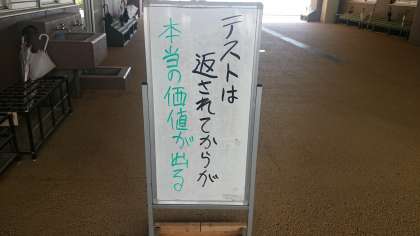 テストは
返されてからが
本当の価値が出る